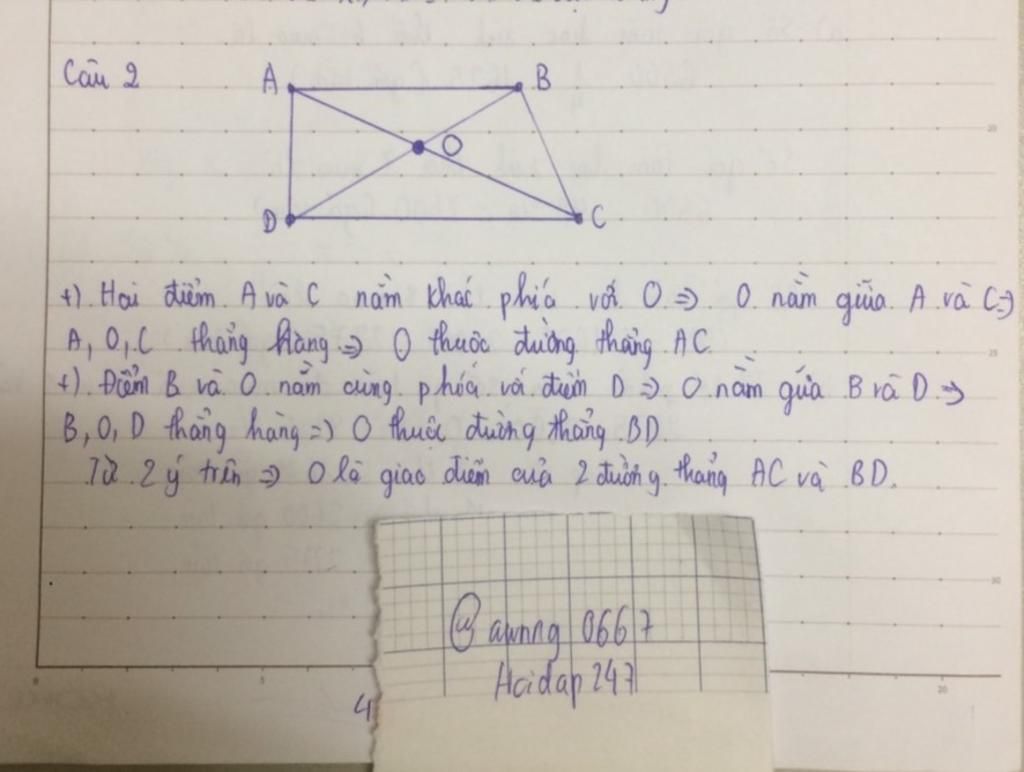 Câu 2
A B
O
D C
+). Hai điểm A và C nằm khác phía với O => O nằm giữa A và C =>
A, O, C thẳng hàng => O thuộc đường thẳng AC.
+). Điểm B và O nằm cùng phía với điểm D => O nằm giữa B và D =>
B, O, D thẳng hàng => O thuộc đường thẳng BD.
Từ 2 ý trên => O là giao điểm của 2 đường thẳng AC và BD.
@awnng 0667
Hoidap247
4